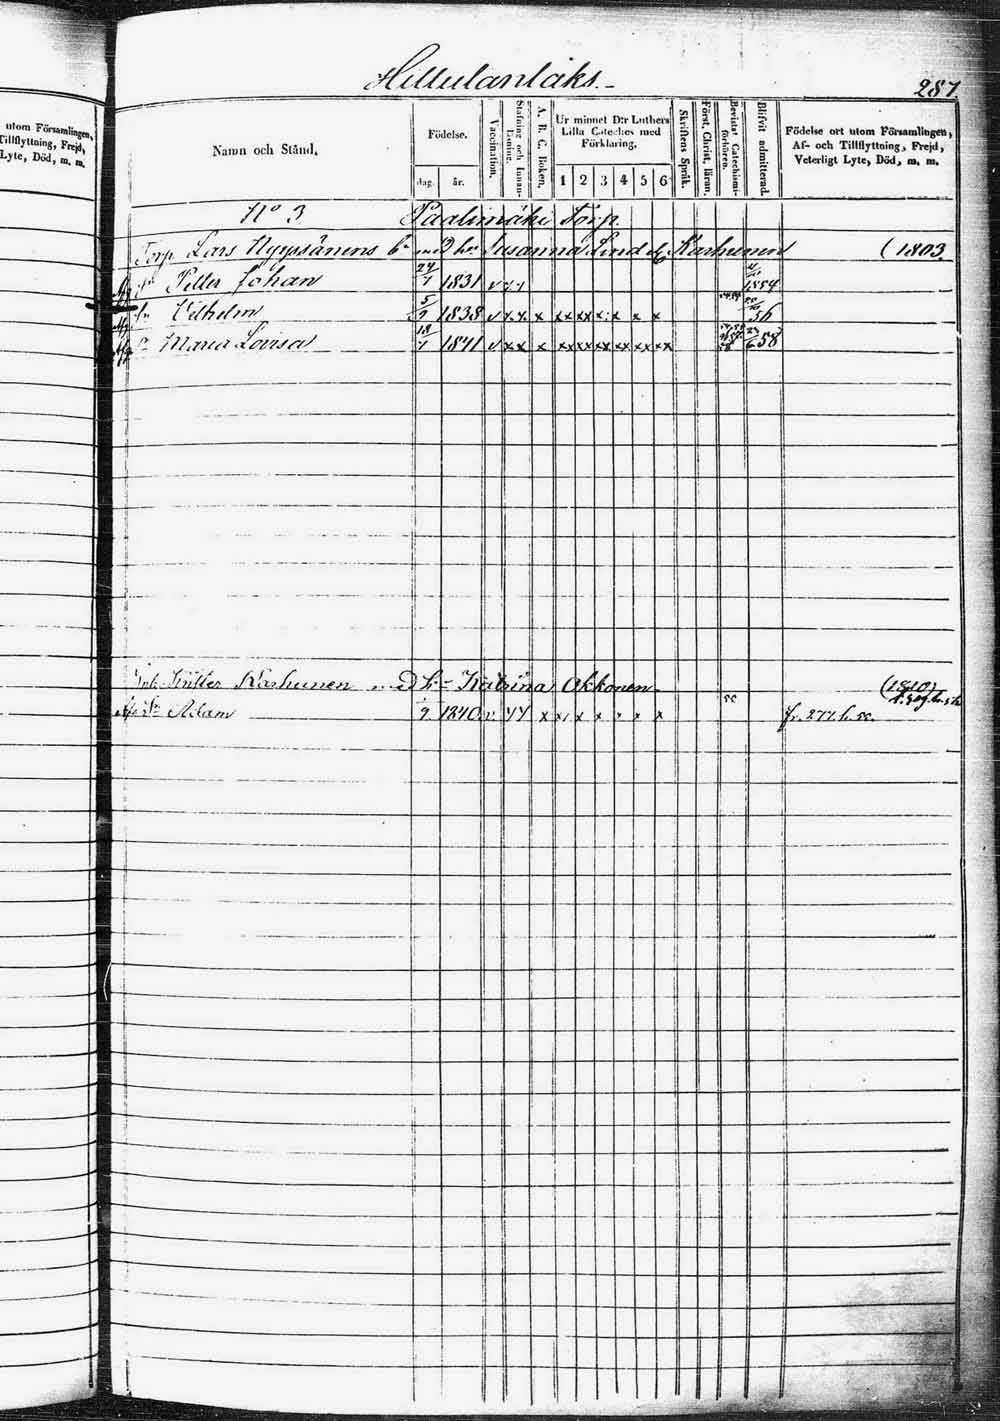 utom Församlingen,
Tillflyttning, Frejd,
Lyte, Död, m. m.
Hillulanlaks.
287
Namn och Stånd.
Födelse.
dag. år.
Vaccination.
Stafning och Innan-läsning.
A. B. C. Boken.
Ur minnet D:r Luthers
Lilla Cateches med
Förklaring.
1 2 3 4 5 6
Skriftens Språk.
Först. Christ. läran.
Bevistat Catechismi-förhören.
Blifvit admitterad.
Födelse ort utom Församlingen,
Af- och Tillflyttning, Frejd,
Veterligt Lyte, Död, m. m.
No 3 Paalimäki Torp.
Torp. Lars Nyyssönens och Susanna Lind Karhunen (1803
Petter Johan 24/1 1831 v x x 1854
Vilhelm 5/9 1838 v x x x xx xx x x x x 56
Maria Lovisa 18/1 1841 v x x x xx xx xx xx xx xx 23/6 58
Petter Karhunen Katrina Okkonen (1810)
Adam 1840 v x x x x x x x 55 fr. 277 h. 55.